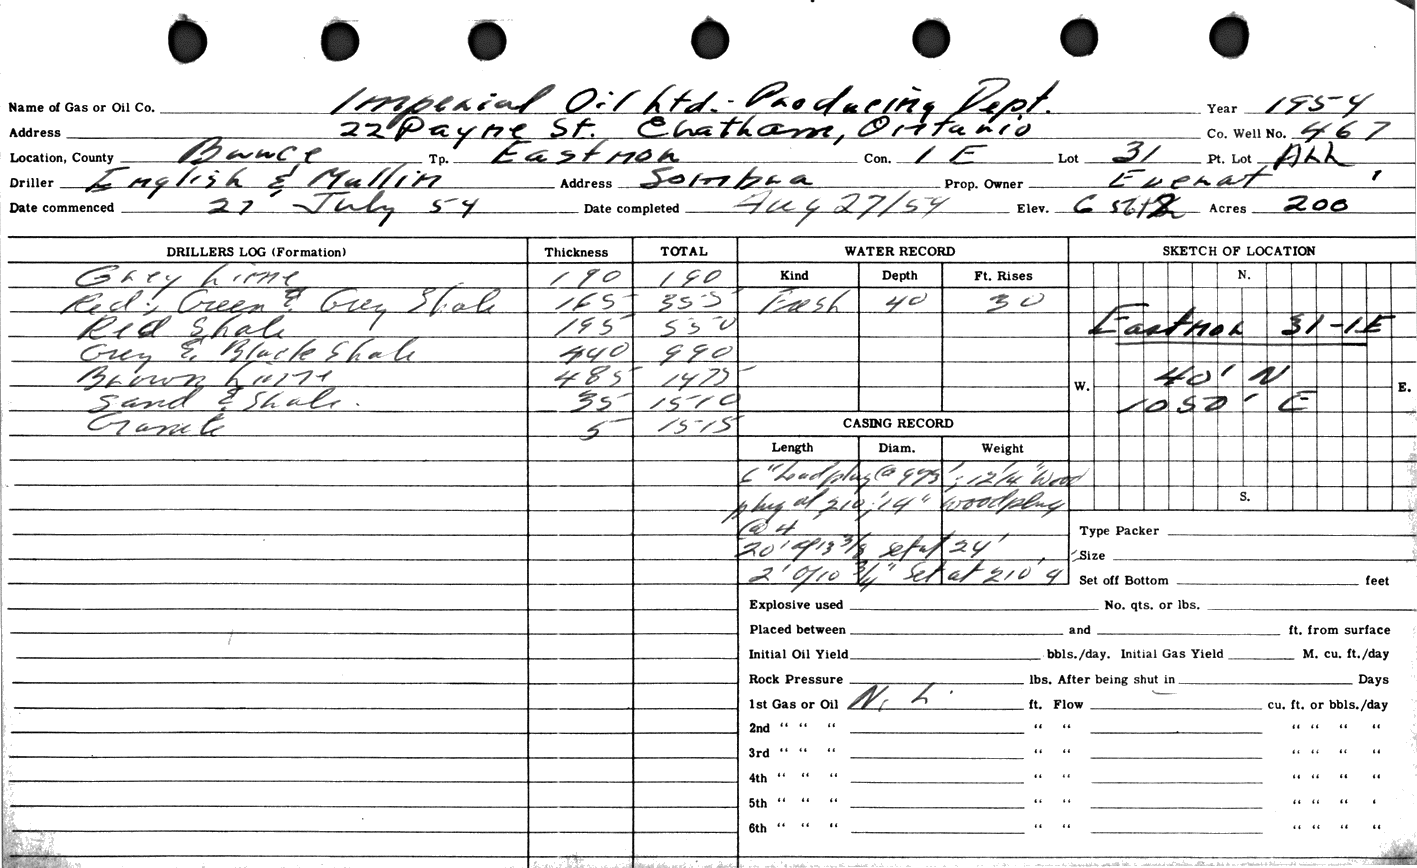 Name of Gas or Oil Co. Imperial Oil Ltd. - Producing Dept. Year 1954
Address 22 Payne St. Chatham, Ontario Co. Well No. 467
Location, County Bruce Tp. Eastnor Con. 1 E Lot 31 Pt. Lot ALL
Driller English & Mullin Address Sombra Prop. Owner
Date commenced 27 July 54 Date completed Aug 27/54 Elev. Acres 200
DRILLERS LOG (Formation) Thickness TOTAL WATER RECORD SKETCH OF LOCATION
Kind Depth Ft. Rises N.
Grey Lime 190 190
Red, Green & Grey Shale 165 355 Fresh 40 30
Red Shale 195 550 Eastnor 31-1E
Grey & Black Shale 440 990
Brown Lime 485 1475 W. 40' N E.
Sand & Shale. 35 1510 1050' E
Granite 5 1515 CASING RECORD
Length Diam. Weight
6" Lead plug @ ; 12 1/4" Wood
plug at 210; 14" wood plug S.
@ 4 Type Packer
20' of 13 3/8 set at 24' Size
2' of 10 3/4" set at 210' 9 Set off Bottom feet
Explosive used No. qts. or lbs.
Placed between and ft. from surface
Initial Oil Yield bbls./day. Initial Gas Yield M. cu. ft./day
Rock Pressure lbs. After being shut in Days
1st Gas or Oil N. L. ft. Flow cu. ft. or bbls./day
2nd “ “ “ “ “ “ “ “ “
3rd “ “ “ “ “ “ “ “ “
4th “ “ “ “ “ “ “ “ “
5th “ “ “ “ “ “ “ “ ‘
6th “ “ “ “ “ “ “ “ “